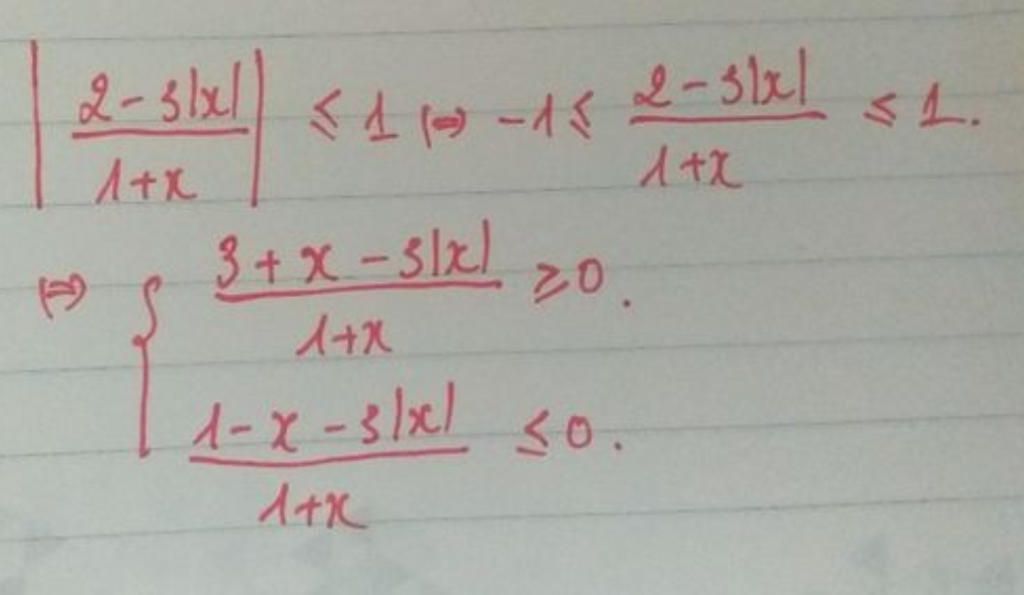 |(2-3|x|)/(1+x)| ≤ 1 ⇔ -1 ≤ (2-3|x|)/(1+x) ≤ 1.
⇔ { (3+x-3|x|)/(1+x) ≥ 0.
(1-x-3|x|)/(1+x) ≤ 0.